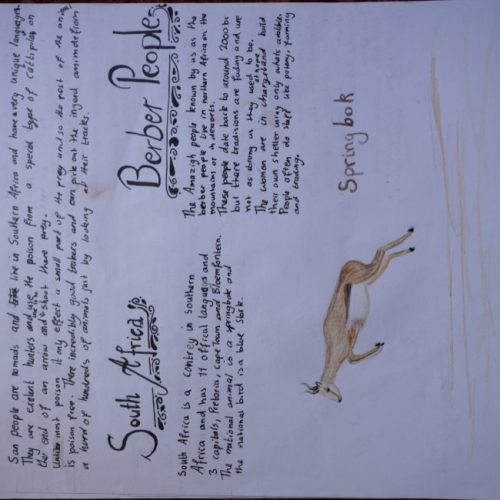 San people are nomads and live in Southern Africa and have very unique languages.
They are exelent hunters and use the poison from a special type of catterpiler on
the end of an arrow and shoot there prey.
Unlike most poison it only effect a small part of the prey and so the rest of the
is poison free. There incredibly good trakers and can pick out the injord animle from
a herd of hundreds of animals just by looking at their tracks.
South Africa
South Africa is a contrey in Southern
Africa and has 11 offical languges and
3 capitals, Pretoria, Cape Town and Bloemfontern.
The national animal is a springbok and
the national bird is a blue Stork.
Berber People
The Amazigh people known by us as the
berber people live in northern Africa in the
mountains or in desserts.
These people date back to around 2000bc
but there tradisions are fading and are
not as strong as they used to be.
The woman are in charge of and build
their own shelter using only whats availible.
People often do stuff like potery, farming
and trading.
Springbok